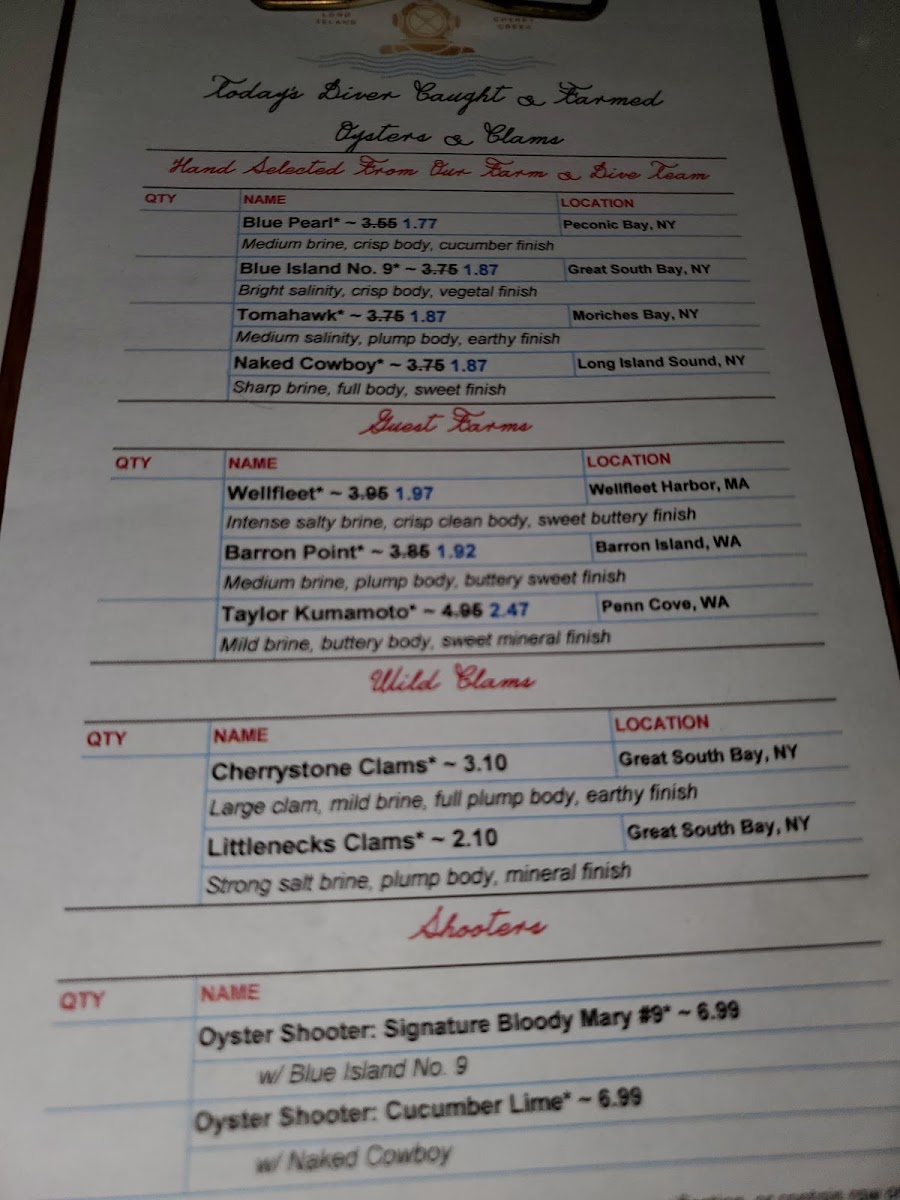 LONG ISLAND CHERRY CREEK
Today's Diver Caught & Farmed
Oysters & Clams
Hand Selected From Our Farm & Dive Team
QTY NAME LOCATION
Blue Pearl* ~ 3.55 1.77 Peconic Bay, NY
Medium brine, crisp body, cucumber finish
Blue Island No. 9* ~ 3.75 1.87 Great South Bay, NY
Bright salinity, crisp body, vegetal finish
Tomahawk* ~ 3.75 1.87 Moriches Bay, NY
Medium salinity, plump body, earthy finish
Naked Cowboy* ~ 3.75 1.87 Long Island Sound, NY
Sharp brine, full body, sweet finish
Guest Farms
QTY NAME LOCATION
Wellfleet* ~ 3.95 1.97 Wellfleet Harbor, MA
Intense salty brine, crisp clean body, sweet buttery finish
Barron Point* ~ 3.85 1.92 Barron Island, WA
Medium brine, plump body, buttery sweet finish
Taylor Kumamoto* ~ 4.95 2.47 Penn Cove, WA
Mild brine, buttery body, sweet mineral finish
Wild Clams
QTY NAME LOCATION
Cherrystone Clams* ~ 3.10 Great South Bay, NY
Large clam, mild brine, full plump body, earthy finish
Littlenecks Clams* ~ 2.10 Great South Bay, NY
Strong salt brine, plump body, mineral finish
Shooters
QTY NAME
Oyster Shooter: Signature Bloody Mary #9* ~ 6.99
w/ Blue Island No. 9
Oyster Shooter: Cucumber Lime* ~ 6.99
w/ Naked Cowboy